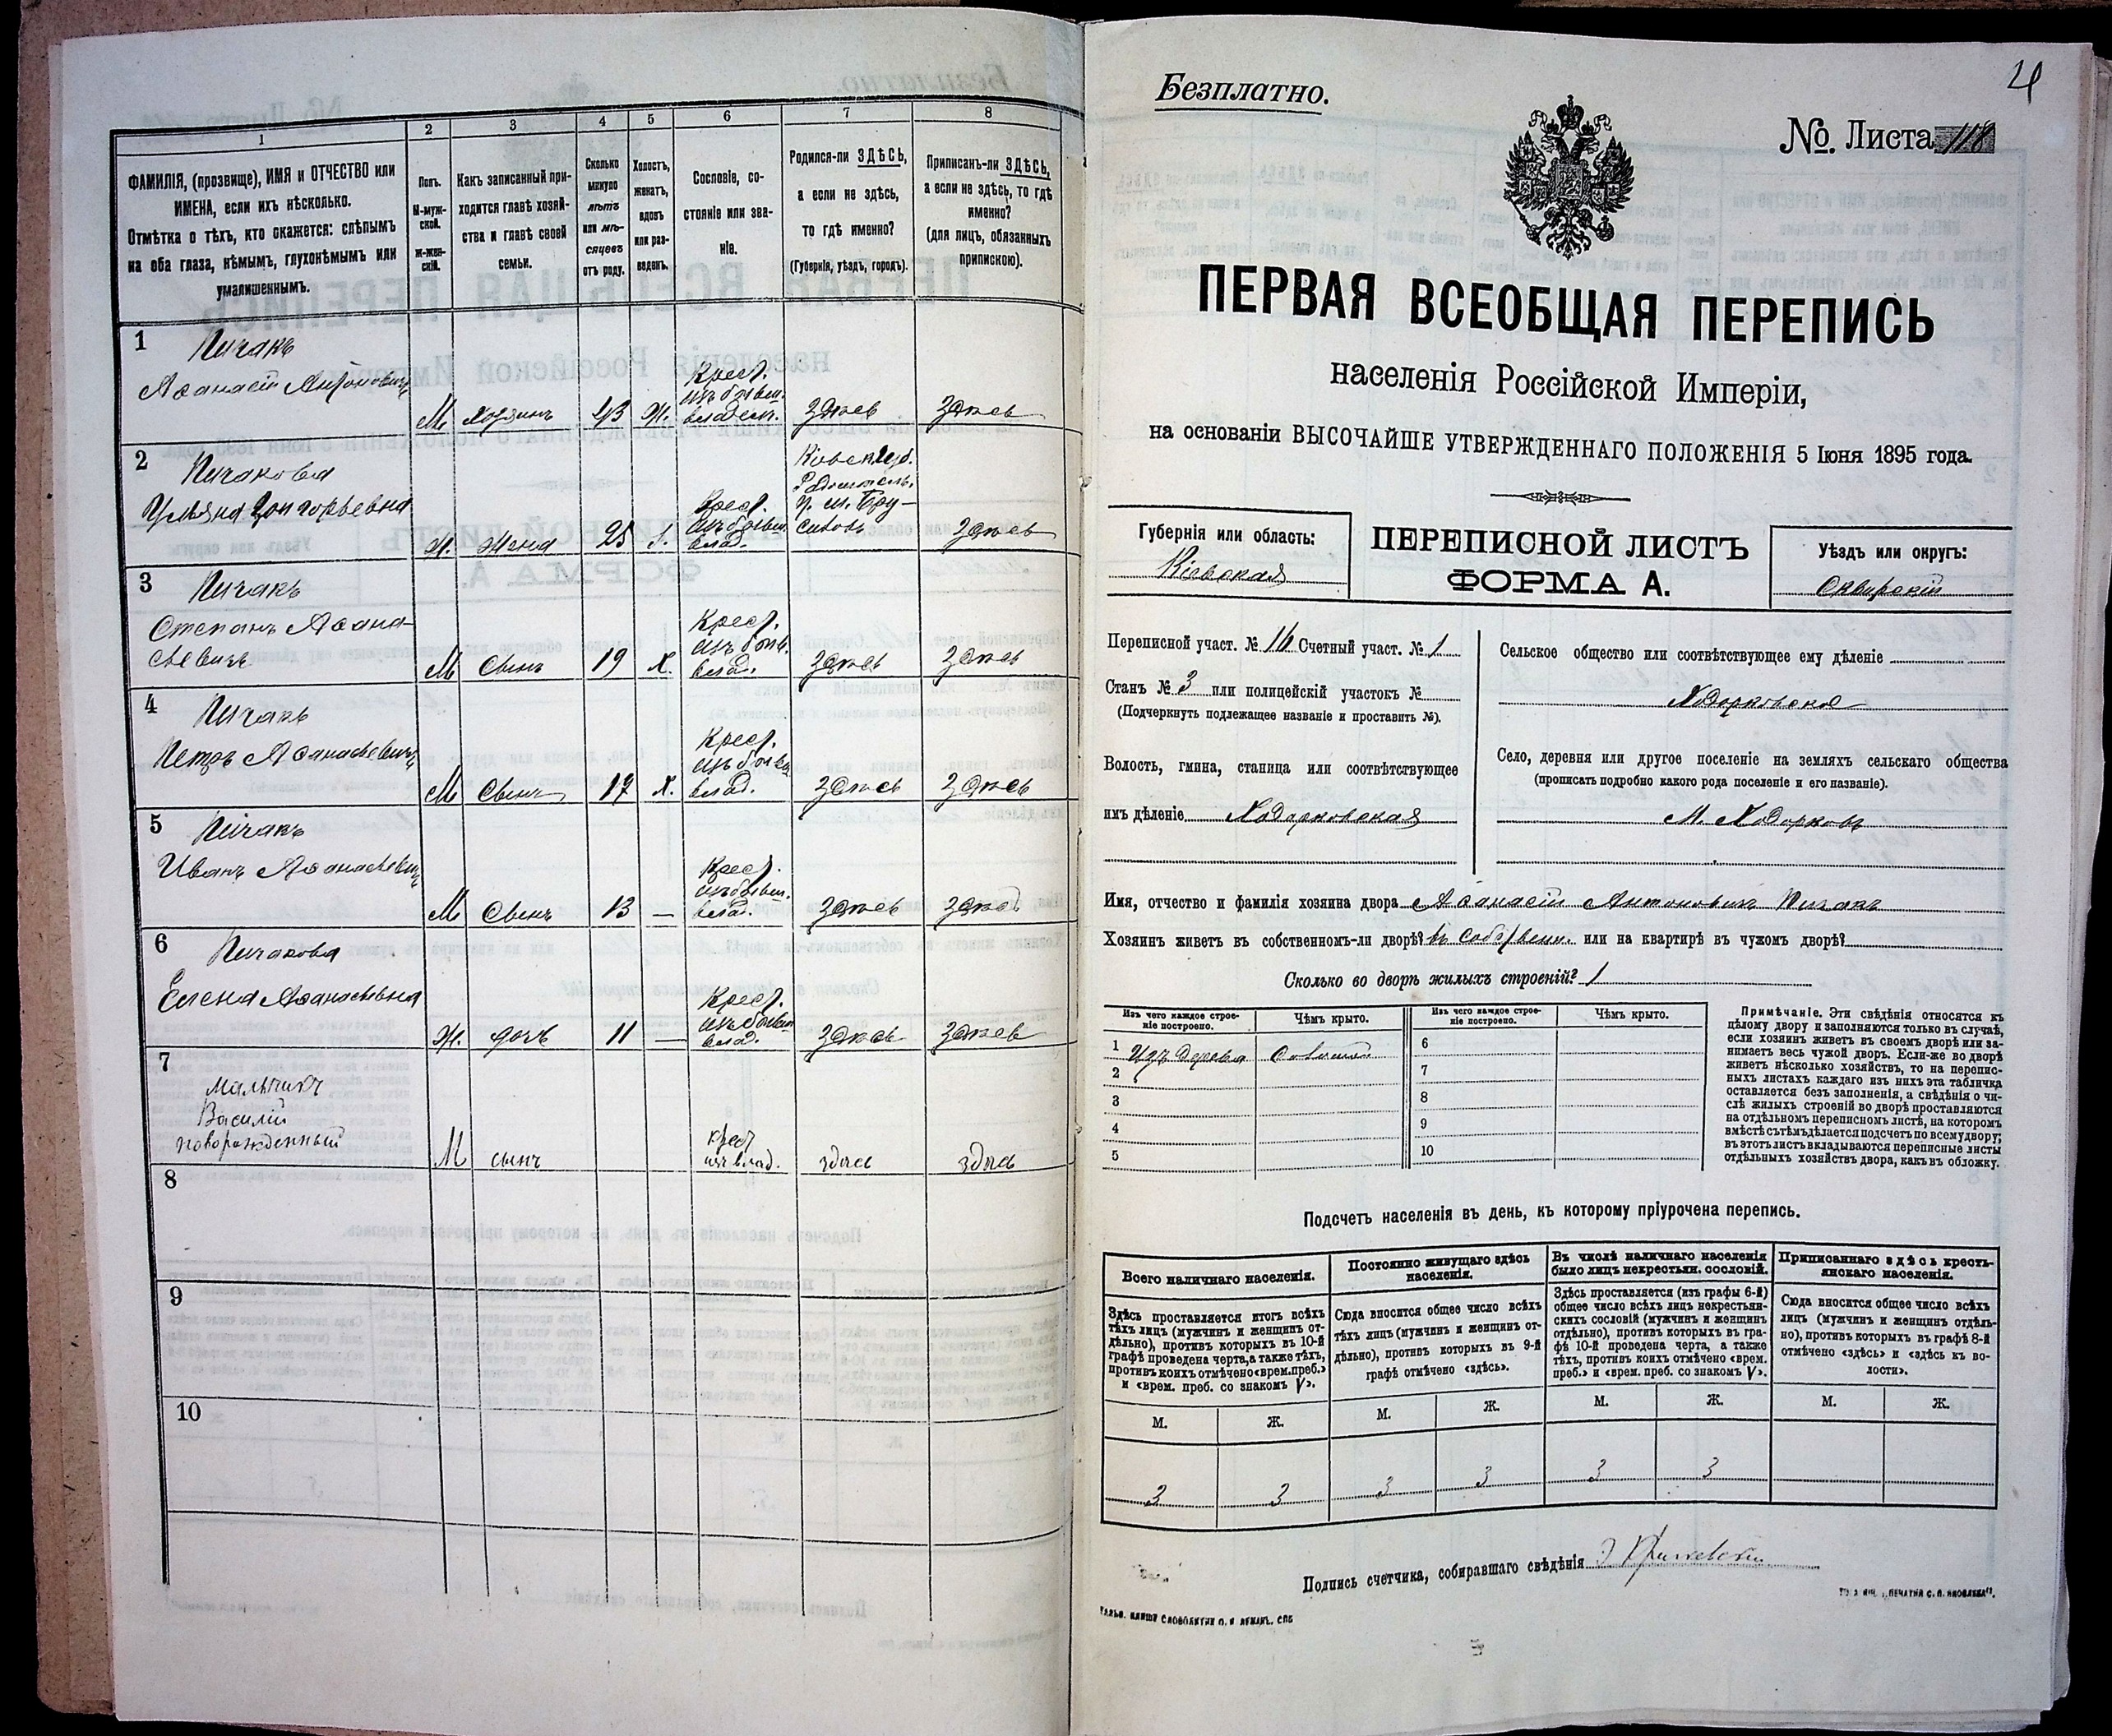 1
2
3
4
5
6
7
8
ФАМИЛІЯ, (прозвище), ИМЯ и ОТЧЕСТВО или
ИМЕНА, если ихъ нѣсколько.
Отмѣтка о тѣхъ, кто окажется: слѣпымъ
на оба глаза, нѣмымъ, глухонѣмымъ или
умалишеннымъ.
Полъ.
М-муж-
ской.
Ж-жен-
скій.
Какъ записанный при-
ходится главѣ хозяй-
ства и главѣ своей
семьи.
Сколько
минуло
лѣтъ
или мѣ-
сяцевъ
отъ роду.
Холостъ,
женатъ,
вдовъ
или раз-
веденъ.
Сословіе, со-
стояніе или зва-
ніе.
Родился-ли ЗДѢСЬ,
а если не здѣсь,
то гдѣ именно?
(Губернія, уѣздъ, городъ).
Приписанъ-ли ЗДѢСЬ,
а если не здѣсь, то гдѣ
именно?
(для лицъ, обязанныхъ
припискою).
1 Пичакъ
Аѳанасій
М Хозяинъ 43 Ж. Крест. изъ бывш. владѣл. Здѣсь Здѣсь
2 Пичакова
Ульяна Григорьевна
Ж. Жена 25 Крест. изъ бывш. влад. Кіевск. губ. Здѣсь
3 Пичакъ
Степанъ Аѳана-
сьевичъ
М Сынъ 19 Х. Крест. изъ бывш. влад. Здѣсь Здѣсь
4 Пичакъ
Петръ Аѳанасьевичъ
М Сынъ 17 Х. Крест. изъ бывш. влад. Здѣсь Здѣсь
5 Пичакъ
Иванъ Аѳанасьевичъ
М Сынъ 13 — Крест. изъ бывш. влад. Здѣсь Здѣсь
6 Пичакова
Елена Аѳанасьевна
Ж. дочь 11 — Крест. изъ бывш. влад. Здѣсь Здѣсь
7 Мальчикъ
Василій
новорожденный
М сынъ крест изъ влад. здѣсь здѣсь
8
9
10
Безплатно.
№. Листа 118
ПЕРВАЯ ВСЕОБЩАЯ ПЕРЕПИСЬ
населенія Россійской Имперіи,
на основаніи ВЫСОЧАЙШЕ УТВЕРЖДЕННАГО ПОЛОЖЕНІЯ 5 Іюня 1895 года.
Губернія или область:
Кіевская
ПЕРЕПИСНОЙ ЛИСТЪ
ФОРМА А.
Уѣздъ или округъ:
Сквирскій
Переписной участ. № 16 Счетный участ. № 1
Станъ № 3 или полицейскій участокъ №
(Подчеркнуть подлежащее названіе и проставить №).
Волость, гмина, станица или соотвѣтствующее
имъ дѣленіе Ходорковская
Сельское общество или соотвѣтствующее ему дѣленіе
Ходорковское
Село, деревня или другое поселеніе на земляхъ сельскаго общества
(прописать подробно какого рода поселеніе и его названіе).
М. Ходорковъ
Имя, отчество и фамилія хозяина двора Аѳанасій Антоновичъ Пичакъ
Хозяинъ живетъ въ собственномъ-ли дворѣ? въ собственн. или на квартирѣ въ чужомъ дворѣ?
Сколько во дворѣ жилыхъ строеній? 1
Изъ чего каждое строе-
ніе построено.
Чѣмъ крыто.
Изъ чего каждое строе-
ніе построено.
Чѣмъ крыто.
1 Изъ дерева Соломой
2
3
4
5
6
7
8
9
10
Примѣчаніе. Эти свѣдѣнія относятся къ
цѣлому двору и заполняются только въ случаѣ,
если хозяинъ живетъ въ своемъ дворѣ или за-
нимаетъ весь чужой дворъ. Если-же во дворѣ
живетъ нѣсколько хозяйствъ, то на перепис-
ныхъ листахъ каждаго изъ нихъ эта табличка
оставляется безъ заполненія, а свѣдѣнія о чи-
слѣ жилыхъ строеній во дворѣ проставляются
на отдѣльномъ переписномъ листѣ, на которомъ
вмѣстѣ съ тѣмъ дѣлается подсчетъ по всему двору;
въ этотъ листъ вкладываются переписные листы
отдѣльныхъ хозяйствъ двора, какъ въ обложку.
Подсчетъ населенія въ день, къ которому пріурочена перепись.
Всего наличнаго населенія.
Здѣсь проставляется итогъ всѣхъ
тѣхъ лицъ (мужчинъ и женщинъ от-
дѣльно), противъ которыхъ въ 10-й
графѣ проведена черта, а также тѣхъ,
противъ коихъ отмѣчено «врем. преб.»
и «врем. преб. со знакомъ V».
Постоянно живущаго здѣсь
населенія.
Сюда вносится общее число всѣхъ
тѣхъ лицъ (мужчинъ и женщинъ от-
дѣльно), противъ которыхъ въ 9-й
графѣ отмѣчено «здѣсь».
Въ числѣ наличнаго населенія
было лицъ некрестьян. сословій.
Здѣсь проставляется (изъ графы 6-й)
общее число всѣхъ лицъ некрестьян-
скихъ сословій (мужчинъ и женщинъ
отдѣльно), противъ которыхъ въ гра-
фѣ 10-й проведена черта, а также
тѣхъ, противъ коихъ отмѣчено «врем.
преб.» и «врем. преб. со знакомъ V».
Приписаннаго здѣсь кресть-
янскаго населенія.
Сюда вносится общее число всѣхъ
лицъ (мужчинъ и женщинъ отдѣль-
но), противъ которыхъ въ графѣ 8-й
отмѣчено «здѣсь» и «здѣсь къ во-
лости».
М. Ж. М. Ж. М. Ж. М. Ж.
3 3 3 3 3 3
Подпись счетчика, собиравшаго свѣдѣнія